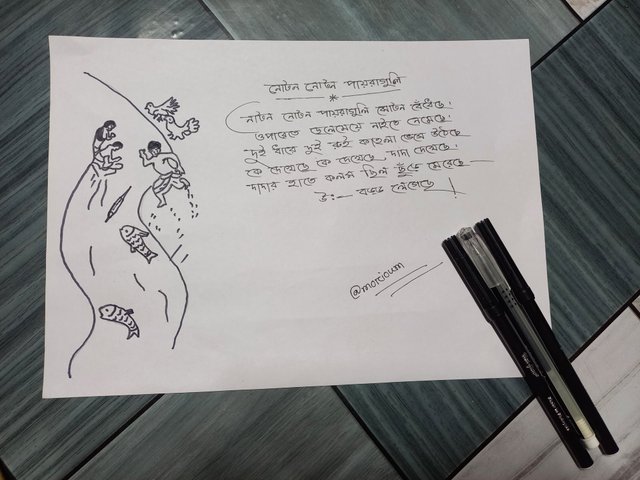 নোটন নোটন পায়রাগুলি
নোটন নোটন পায়রাগুলি ঝোটন বেঁধেছে।
ওপারেতে ছেলেমেয়ে নাইতে নেমেছে।
দুই ধারে দুই রুই কাতলা ভেসে উঠেছে
কে দেখেছে কে দেখেছে দাদা দেখেছে।
দাদার হাতে কলম ছিল ছুঁড়ে মেরেছে —
উঃ— বড্ড লেগেছে!
@morioum